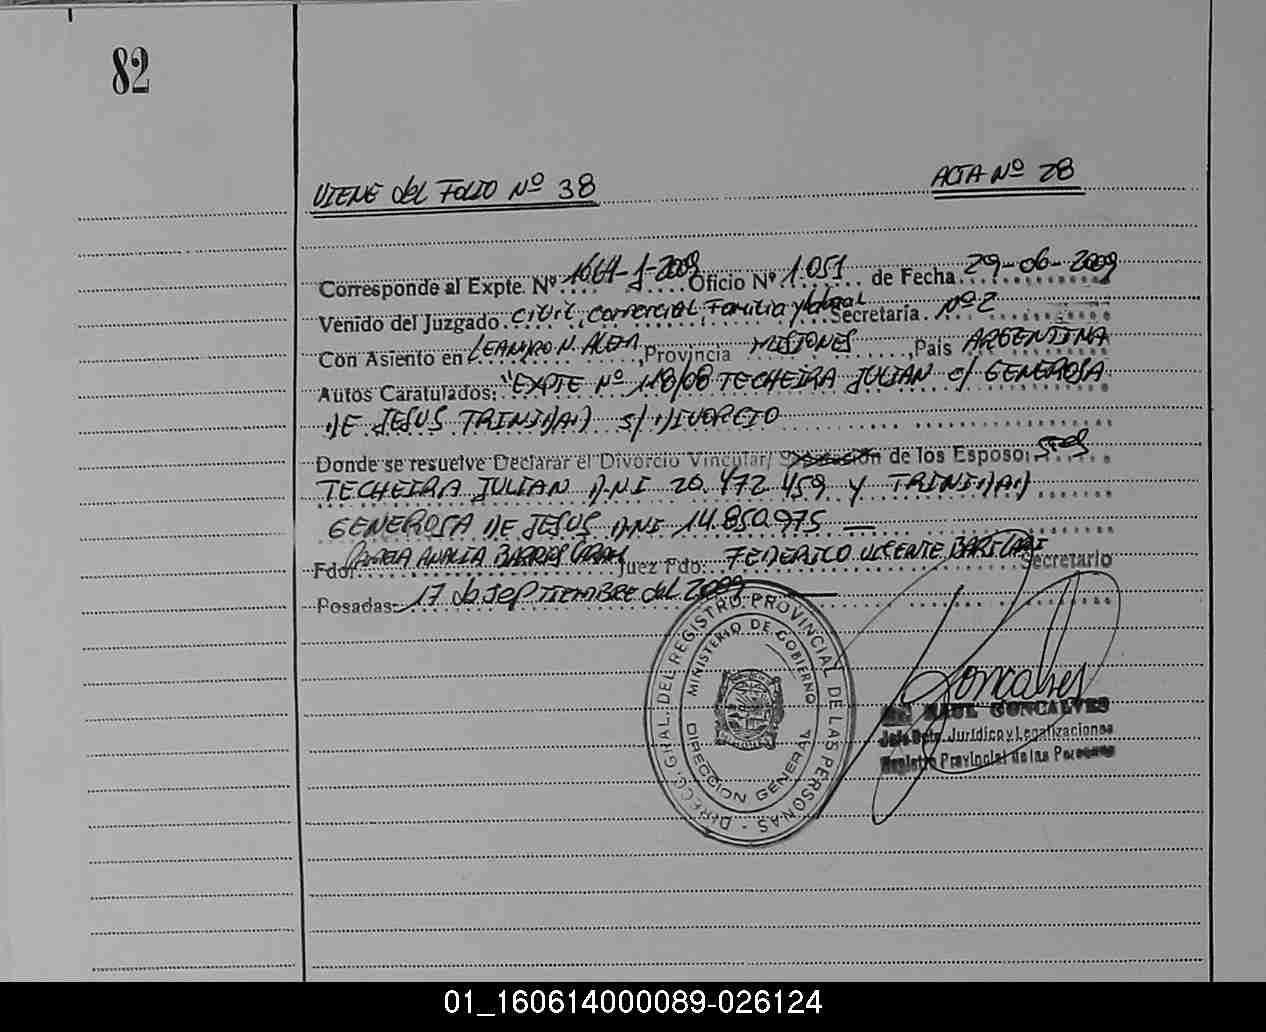 82
VIENE del FOLIO Nº 38
ACTA Nº 28
Corresponde al Expte. Nº 1661-J-2009 Oficio Nº 1.051 de Fecha 29-06-2009
Venido del Juzgado Civil, Comercial, Familia y laboral Secretaria Nº 2
Con Asiento en LEANDRO N. ALEM, Provincia MISIONES, País ARGENTINA
Autos Caratulados: "EXPTE Nº 118/08 TECHEIRA JULIAN c/ GENEROSA
DE JESUS TRINIDAD s/ DIVORCIO
Donde se resuelve Declarar el Divorcio Vincular/ Separación de los Esposo: Sres
TECHEIRA JULIAN D.N.I 20.472.459 Y TRINIDAD
GENEROSA DE JESUS DNI 14.850.975 —
Fdo: ANALIA BARROS Juez Fdo: FEDERICO VICENTE Secretario
Posadas: 17 de SEPTIEMBRE del 2009
DIRECC. GRAL. DEL REGISTRO PROVINCIAL DE LAS PERSONAS -
MINISTERIO DE GOBIERNO
DIRECCION GENERAL
Goncalves
RAUL GONCALVES
Jefe Dpto. Jurídico y Legalizaciones
Registro Provincial de las Personas
01_160614000089-026124